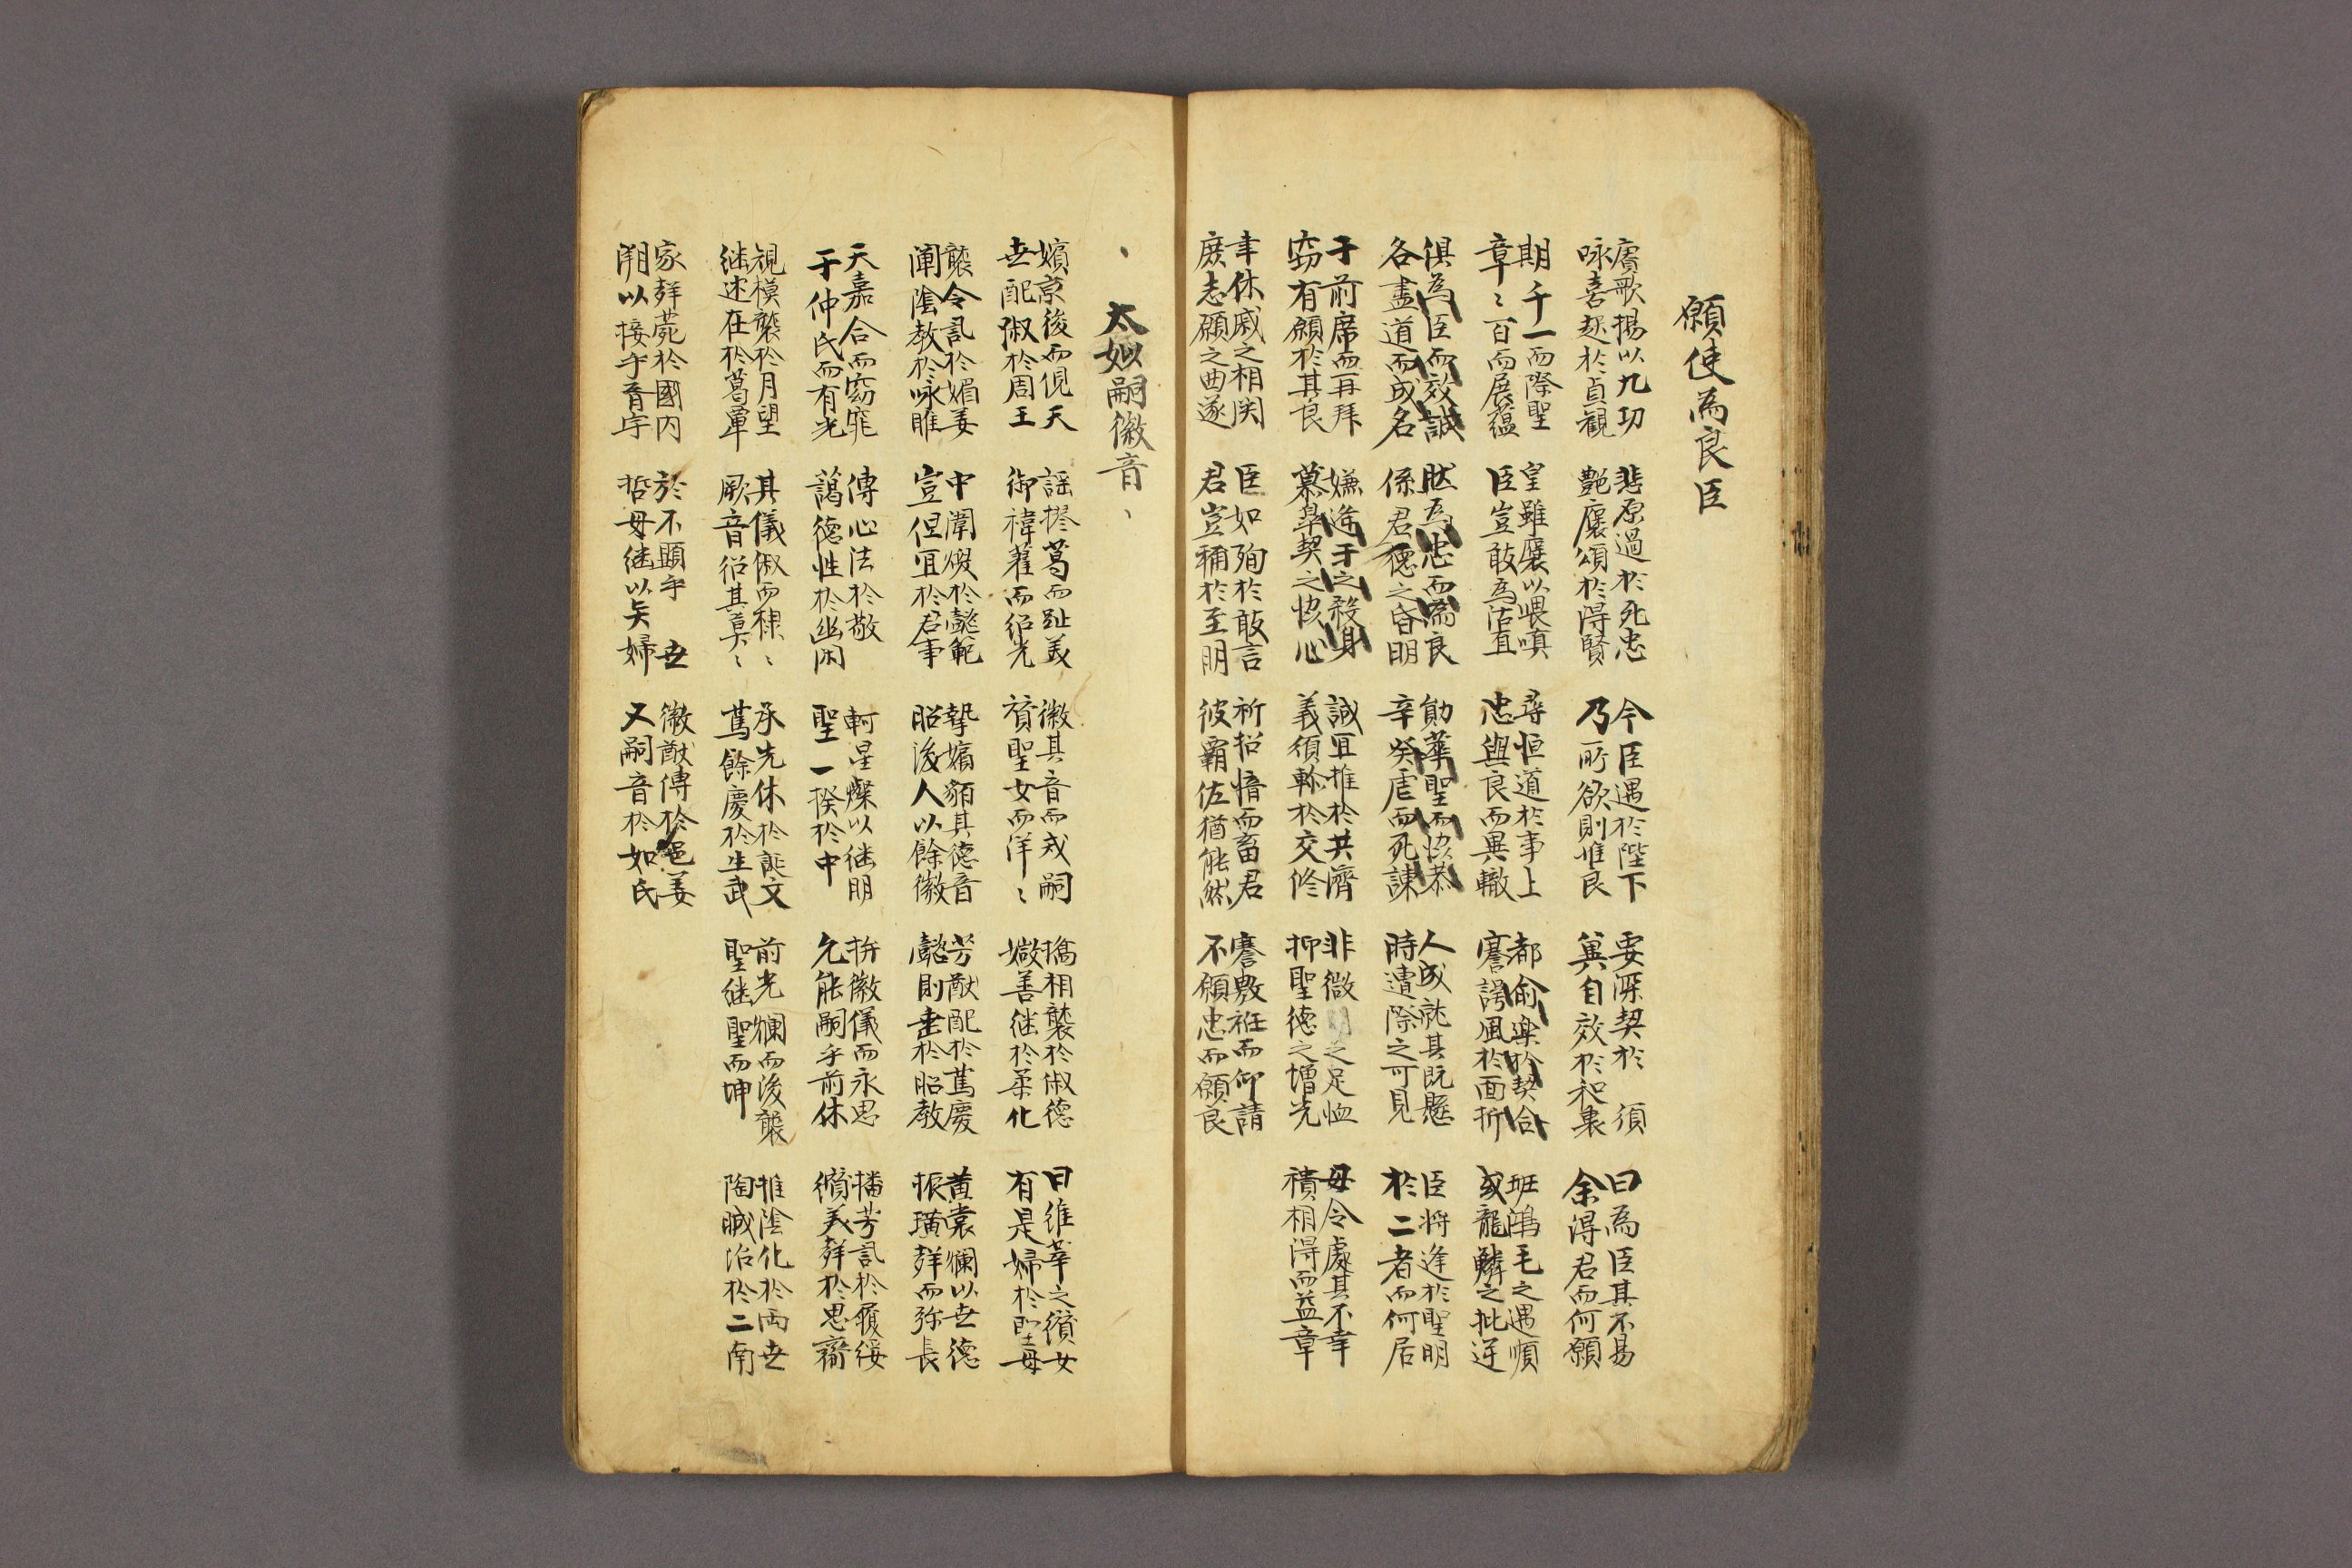 願使為良臣
賡歌揚以九功
咏喜起於貞觀
悲原過於死忠
艶褒頌於得賢
今臣遇於陛下
乃所欲則惟良
要深契於 須
冀自效於和衷
曰為臣其不易
余得君而何願
期千一而際聖
章〻百而展蘊
皇雖襃以畏嗔
臣豈敢為沽直
尋恒道於事上
忠與良而異轍
都俞樂於契合
謇諤風於面折
班鴻毛之遇順
或龍鱗之批逆
俱為臣而效誠
各盡道而成名
然為忠而為良
係君德之昏明
勛華聖而協恭
辛癸虐而死諫
人成就其既懸
時遭際之可見
臣將逢於聖明
於二者而何居
于前席而再拜
竊有願於其良
嫌逄干之殺身
慕皐契之協心
誠宜推於共濟
義須軫於交修
非微 之足恤
抑聖德之增光
毋令處其不幸
積相得而益章
幸休戚之相関
庶志願之曲遂
臣如殉於敢言
君豈稱於至明
祈招愔而畜君
彼霸佐猶能然
謇敷衽而仰請
不願忠而願良
太姒嗣徽音
嬪京後而俔天
世配淑於周王
謡搽葛而趾美
御褘翟而紹光
徽其音而戎嗣
賛聖女而洋〻
摛相襲於俶德
媺善継於柔化
曰維莘之纘女
有是婦於聖母
襲令訊於媚姜
闡陰教於咏雎
中闈煥於懿範
豈但宜於君事
摯嬪貊其德音
昭後人以餘徽
芳猷配於蔦慶
懿則垂於昭教
黃裳爛以世德
振璜群而弥長
天嘉合而窈窕
于仲氏而有光
傳心法於敬
藹德性於幽闲
軻星燦以継明
聖一揆於中
拚徽儀而永思
允能嗣乎前休
播芳訊於履綏
纘美群於思齋
視模襲於月望
継述在於葛覃
其儀俶而棣〻
厥音紹其莫〻
承先休於誕文
蔦餘慶於生武
前光爛而後襲
聖継聖而坤
推陰化於両世
陶贓治於二南
家群薨於國内
淵以接乎音宇
於不顯乎 世
哲母継以矣婦
徽猷傳於邑姜
又嗣音於如氏